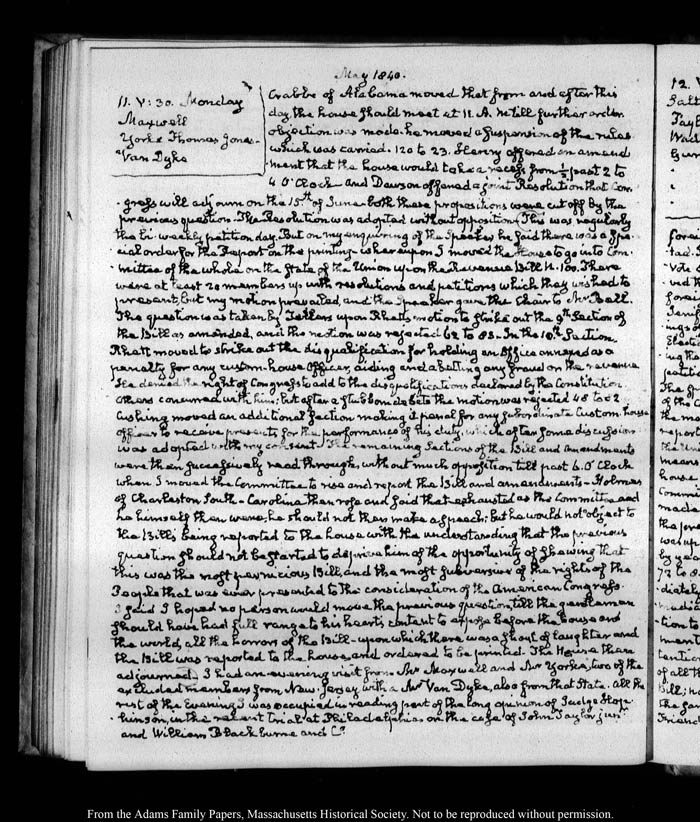 May 1840.
11. V: 30. Monday
Maxwell
Yorke Thomas Jones
Van Dyke
Crabbe of Alabama moved that from and after this
day, the house should meet at 11. A.M. till further order
objection was made. he moved a suspension of the rules
which was carried. 120 to 23. Henry offered an amend
ment that the house would take a recess from ½ past 2 to
4 O'Clock and Dawson offered a joint Resolution that Con-
gress will adjourn on the 15th of June. both these propositions were cut off by the
previous question. The Resolution was adopted without opposition. This was regularly
the bi-weekly petition day. But on my enquiring of the Speaker he said there was a spe-
cial order for the Report on the printing—whereupon I moved the House to go into Com-
mittee of the whole on the State of the Union upon the Revenue Bill N. 100. There
were at least 20 members up with resolutions and petitions which they wished to
present, but my motion prevailed, and the Speaker gave the Chair to Mr Bell.
The question was taken by Tellers upon Rhett's motion to strike out the 9th Section of
the Bill as amended, and the motion was rejected 62 to 83. In the 10th Section
Rhett moved to strike out the disqualification for holding an Office annexed as a
penalty for any custom-house Officer, aiding and abetting any fraud on the revenue
He denied the right of Congress to add to the disqualifications declared by the Constitution
others concurred with him; but after a stubborn debate the motion was rejected 48 to 62
Cushing moved an additional section making it penal for any subordinate Custom house
officer to receive presents for the performance of his duty, which after some discussion
was adopted with my consent. The remaining Sections of the Bill and amendments
were then successively read through, without much opposition till past 6. O'Clock
when I moved the Committee to rise and report the Bill and amendments—Holmes
of Charleston South-Carolina then rose and said that exhausted as the Committee and
he himself then were, he should not then make a speech; But he would not object to
the Bill's being reported to the house with the understanding that the previous
question should not be started to deprive him of the opportunity of shewing that
this was the most pernicious Bill, and the most subversive of the rights of the
People that was ever presented to the consideration of the American Congress.
I said I hoped no person would move the previous question till the gentleman
should have had full range to his heart's content to expose before the house and
the world, all the horrors of the Bill—upon which there was a shout of laughter and
the Bill was reported to the house, and ordered to be printed. The House then
adjourned. I had an evening visit from Mr Maxwell and Mr Yorke, two of the
excluded members from New-Jersey with a Mr Van Dyke, also from that State. all the
rest of the Evening I was occupied in reading part of the long opinion of Judge Hop-
kinson, in the recent trial at Philadelphia on the case of John Taylor junr
and William Blackburne and Co
12.
From the Adams Family Papers, Massachusetts Historical Society. Not to be reproduced without permission.